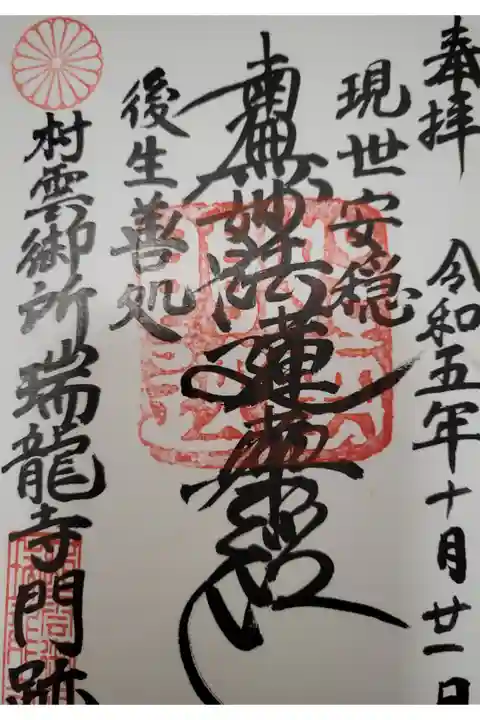 奉拝 令和五年十月廿一日
現世安穏
南無妙法蓮華経
後生善処
村雲御所瑞龍寺門跡